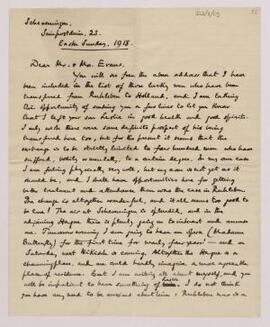 Scheveningen,
23.
Easter Sunday, 1918.
Dear Mr. & Mrs. Evans.
You will see from the above address that I have
been included in the list of those lucky men who have been
transferred from Ruhleben to Holland, and I am taking
this opportunity of sending you a few lines to let you know
that I left your son Leslie in good health and good spirits.
I only wish there were some definite prospect of his being
transferred here too, but for the present it seems that the
exchange is to be strictly limited to four hundred men who have
suffered, bodily or mentally, to a certain degree. In my own case
I am feeling physically very well, but my arm is not yet as it
should be, and I shall have opportunities here for getting
better treatment and attendance than was the case in Ruhleben.
The change is altogether wonderful, and it all seems too good to
be true! The air at Scheveningen is splendid, and in the
adjoining Hague there is plenty going on to interest and amuse
me. Tomorrow evening I am going to hear an opera (Madame
Butterfly) for the first time for nearly four years! — and on
Saturday next is coming. Altogether the Hague is a
charming place, and one could hardly imagine a more agreeable
place of residence. But I am writing all about myself, and you
will be impatient to hear something of Leslie. I do not think
you have any need to be anxious about him. Ruhleben now is a